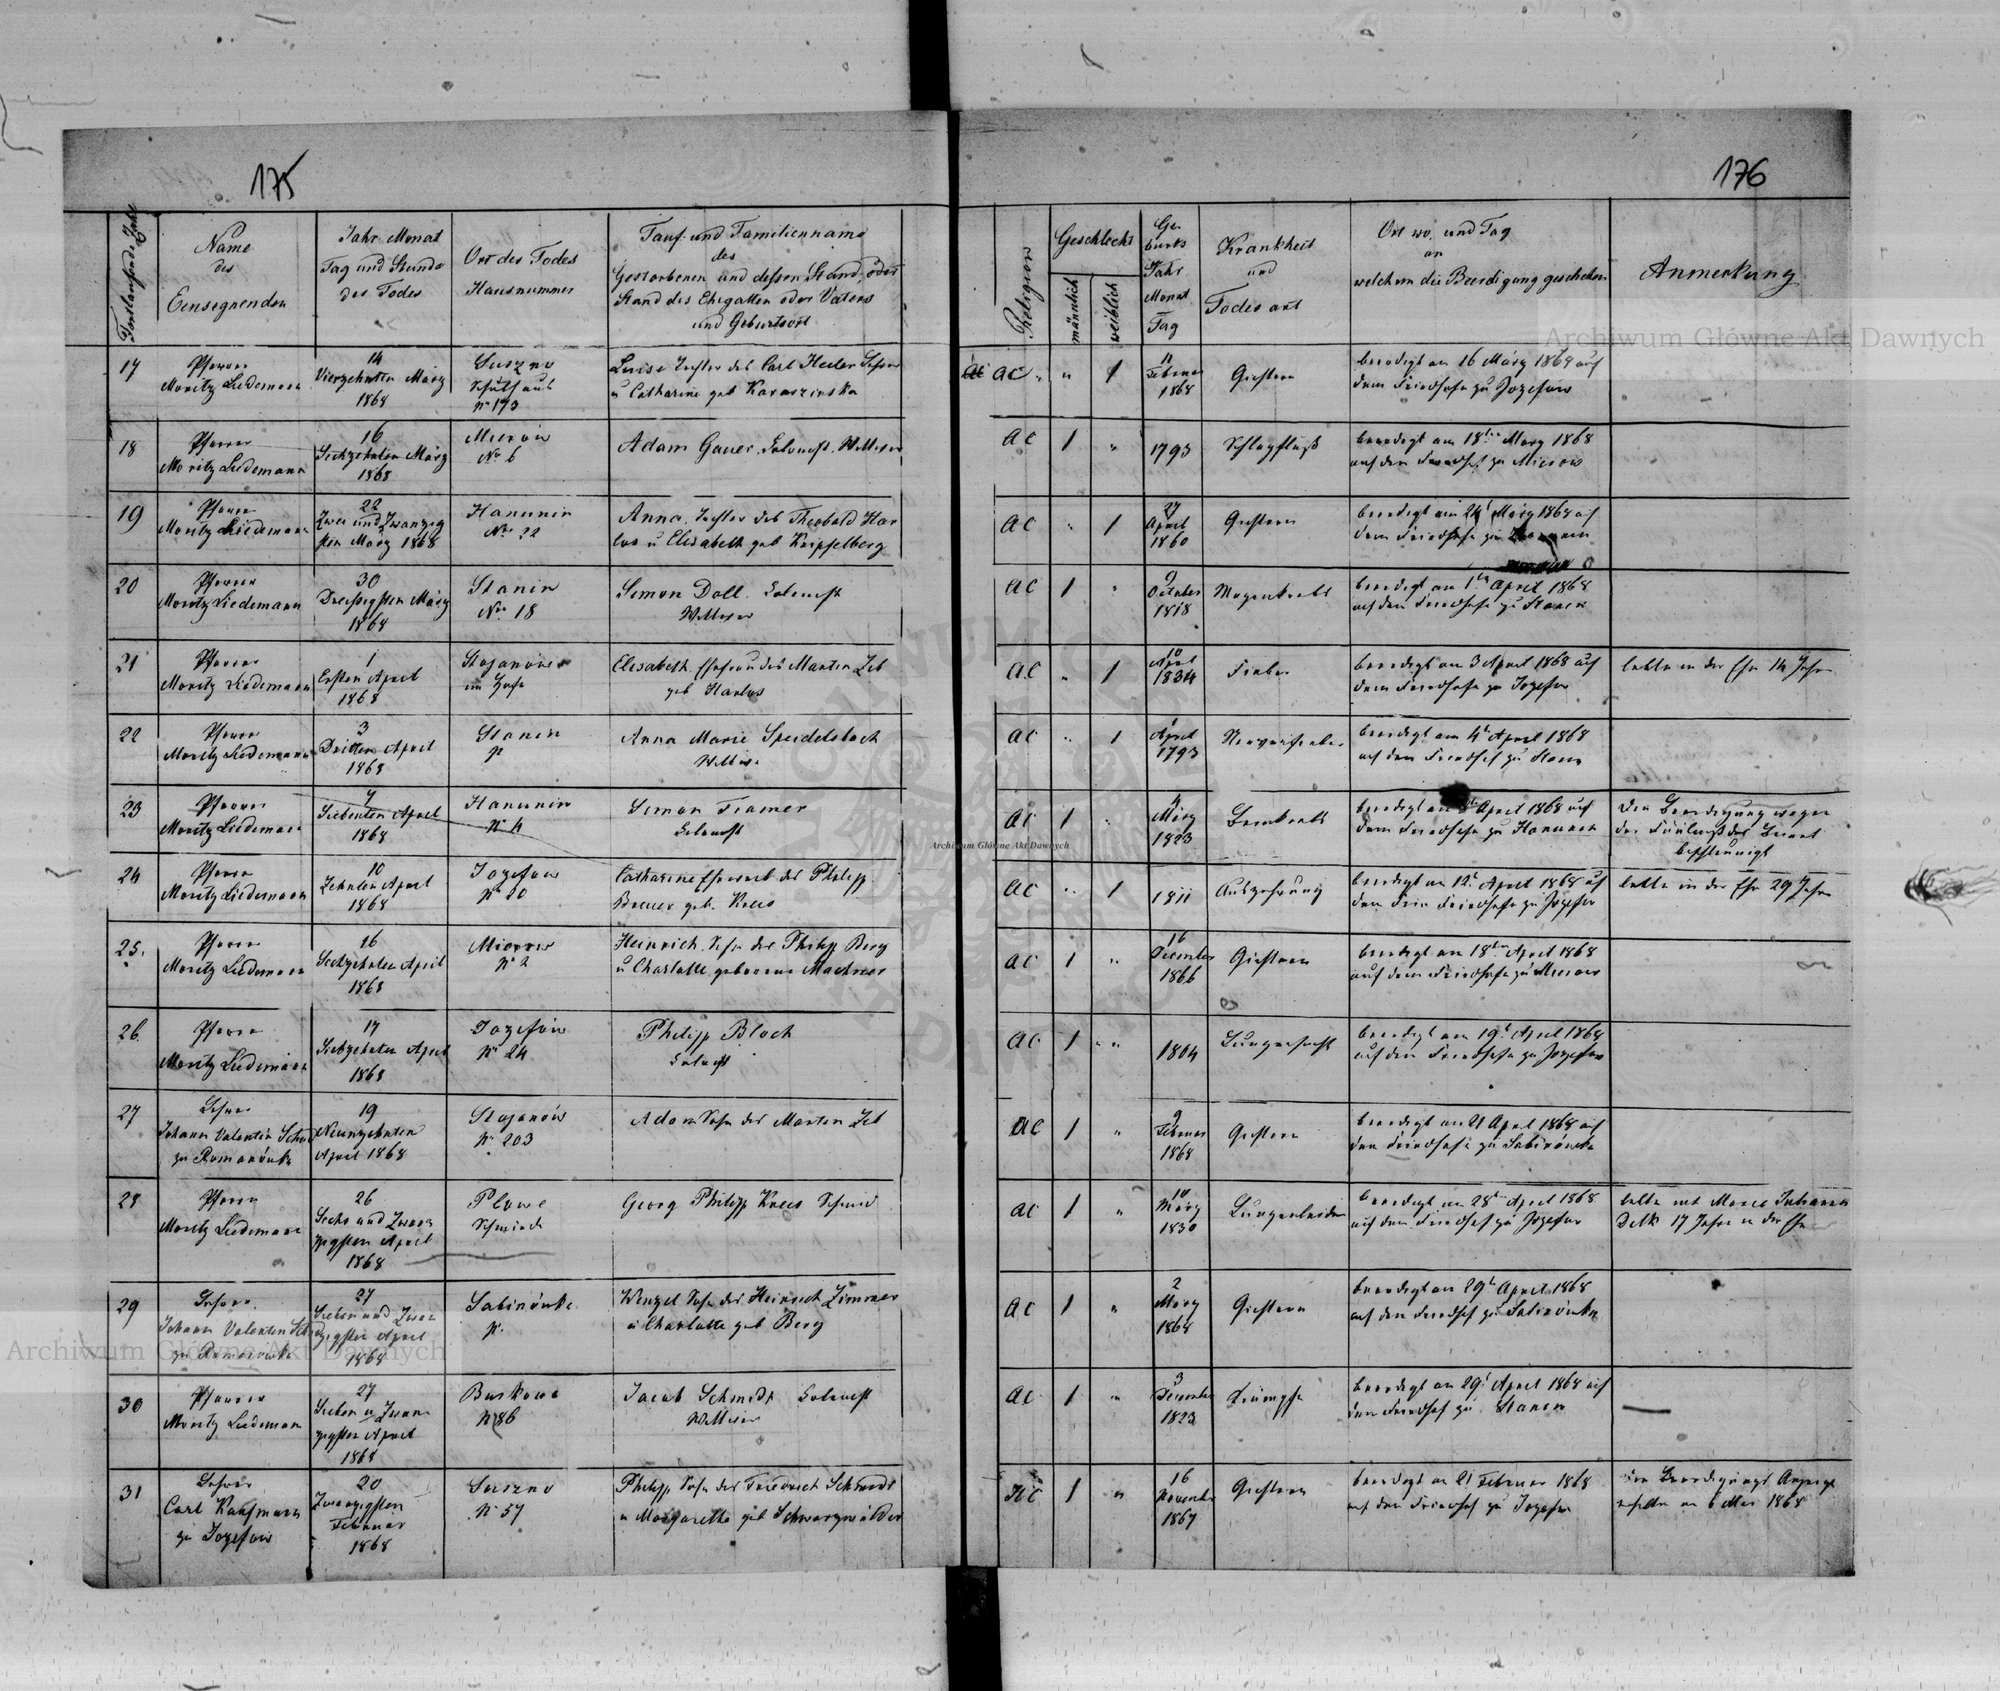 175
176
Fortlaufende Zahl
Name
des
Einsegnenden
Jahr Monat
Tag und Stunde
des Todes
Ort des Todes
Hausnummer
Tauf- und Familienname
des
Gestorbenen und dessen Stand, oder
Stand des Ehegatten oder Vaters
und Geburtsort
Religion
Geschlecht
männlich
weiblich
Geburts
Jahr
Monat
Tag
Krankheit
und
Todesart
Ort wo, und Tag
an
welchem die Beerdigung geschehen
Anmerkung
17
Pfarrer
Moritz Liedemann
14
Vierzehnten März
1868
Suszno
No 173
Luise Tochter des Carl
u Catharine geb
AC
1
11
Februar
1868
beerdigt am 16 März 1868 auf
dem Friedhofe zu Jozefow
18
Pfarrer
Moritz Liedemann
16
Sechzehnten März
1868
Mierow
No 6
Adam Gauer, Wittwer
AC
1
1793
Schlagfluß
beerdigt am 18ten März 1868
auf dem Friedhof zu Mierow
19
Pfarrer
Moritz Liedemann
22
Zwei und Zwanzig
sten März 1868
Hanunin
No 22
Anna, Tochter des Theobald Har
los u Elisabeth geb Kripfelberg
AC
1
27
April
1860
beerdigt am 24t März 1868 auf
dem Friedhofe zu Hanunin
20
Pfarrer
Moritz Liedemann
30
Dreißigsten März
1868
Stanin
No 18
Simon Doll,
Wittwer
AC
1
9
October
1818
Magenkrebs
beerdigt am 1ten April 1868
auf dem Friedhofe zu Stanin
21
Pfarrer
Moritz Liedemann
1
Ersten April
1868
Stojanów
im Hofe
Elisabeth, Ehefrau des Martin Zeb
geb Harlos
AC
1
10
April
1834
Fieber
beerdigt am 3 April 1868 auf
dem Friedhofe zu Jozefow
lebte in der Ehe 14 Jahre
22
Pfarrer
Moritz Liedemann
3
Dritten April
1868
Stanin
Anna Marie Speidelbach
Wittwe
AC
1
1
April
1793
Nervenfieber
beerdigt am 4t April 1868
auf dem Friedhof zu Stanin
23
Pfarrer
Moritz Liedemann
7
Siebenten April
1868
Hanunin
No 4
Simon Tramer
AC
1
März
1823
beerdigt am April 1868 auf
dem Friedhofe zu Hanunin
Die Beerdigung wegen
der Fäulniß des
beschleunigt
24
Pfarrer
Moritz Liedemann
10
Zehnten April
1868
Jozefow
No 20
Catharine Eheweib des Philipp
Breuer geb. Kries
AC
1
1811
Auszehrung
beerdigt am 12t April 1868 auf
dem Friedhofe zu Jozefow
lebte in der Ehe 29 Jahre
25.
Pfarrer
Moritz Liedemann
16
Sechzehnten April
1868
Mierow
No 2
Heinrich, Sohn des Philipp Berg
u Charlotte geborene Machner
AC
1
16
December
1866
beerdigt am 18ten April 1868
auf dem Friedhofe zu Mierow
26
Pfarrer
Moritz Liedemann
17
Siebzehnten April
1868
Jozefów
No 24
Philipp Bloch
AC
1
1804
Lungensucht
beerdigt am 19t April 1868
auf dem Friedhofe zu Jozefow
27
Lehrer
Johann Valentin
zu Romanówka
19
Neunzehnten
April 1868
Stojanów
No 203
Adam Sohn des Martin Zeb
AC
1
9
Februar
1868
beerdigt am 21 April 1868 auf
dem Friedhofe zu Sabinówka
28
Pfarrer
Moritz Liedemann
26
Sechs und Zwan
zigsten April
1868
Plowe
Schmiede
Georg Philipp Kries Schmied
AC
1
10
März
1830
Lungenleiden
beerdigt am 28t April 1868
auf dem Friedhof zu Jozefow
lebte mit Marie Johanna
17 Jahre in der Ehe
29
Lehrer
Johann Valentin
zu Romanówka
27
Sieben und Zwan
zigsten April
1868
Sabinówka
No.
Wenzel Sohn des Heinrich Zimmer
u Charlotte geb Berg
AC
1
2
März
1868
beerdigt am 29t April 1868
auf dem Friedhof zu Sabinówka
30
Pfarrer
Moritz Liedemann
27
Sieben u Zwan
zigsten April
1868
No 86
Jacob Schmidt
Wittwer
AC
1
3
December
1823
Krämpfe
beerdigt am 29t April 1868 auf
dem Friedhof zu Stanin
31
Lehrer
Carl Kaufmann
zu Jozefow
20
Zwanzigsten
Februar
1868
Suszno
No 57
Philipp Sohn des Friedrich Schmidt
u Margaretha geb Schwarzwälder
HC
1
16
November
1867
beerdigt am 21 Februar 1868
auf dem Friedhof zu Jozefow
die Beerdigungs Anzeige
erfolgte am 6 Mai 1868
Archiwum Główne Akt Dawnych
Archiwum Główne Akt Dawnych
Archiwum Główne Akt Dawnych